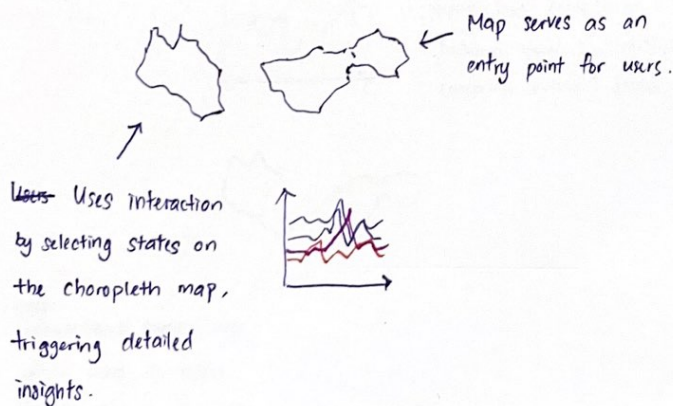 Map serves as an
entry point for users.
Users Uses interaction
by selecting states on
the choropleth map,
triggering detailed
insights.